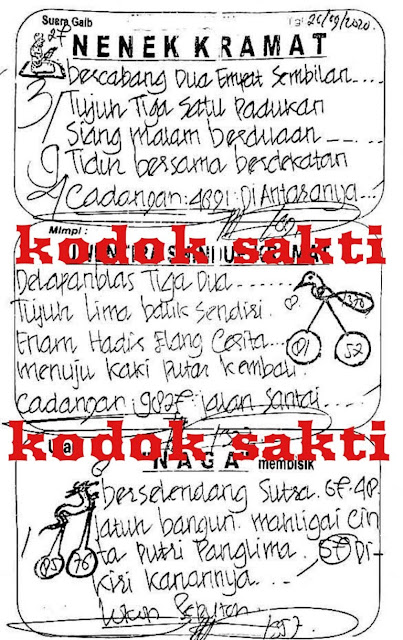 Suara Gaib Tgl 26/09/2020.
27
NENEK KRAMAT
Bercabang Dua Empat Sembilan....
3/ Tujuh Tiga Satu Padukan
Siang malam berduaan
9 Tidur bersama berdekatan
2/ Cadangan: 4891: Di Antaranya...
Mimpi :
kodok sakti
Delapanblas Tiga Dua........
Tujuh Lima balik Sendiri.
Enam Hadir Elang Cerita...
menuju kaki putar kembali
Cadangan: 9827: jalan santai....
1378
01 52
kodok sakti
"NAGA" membisik
berselendang Sutra. 67.48.
jatuh bangun. mahligai cin
ta Putri Panglima. 57 Di-
kiri kanannya...
95 76